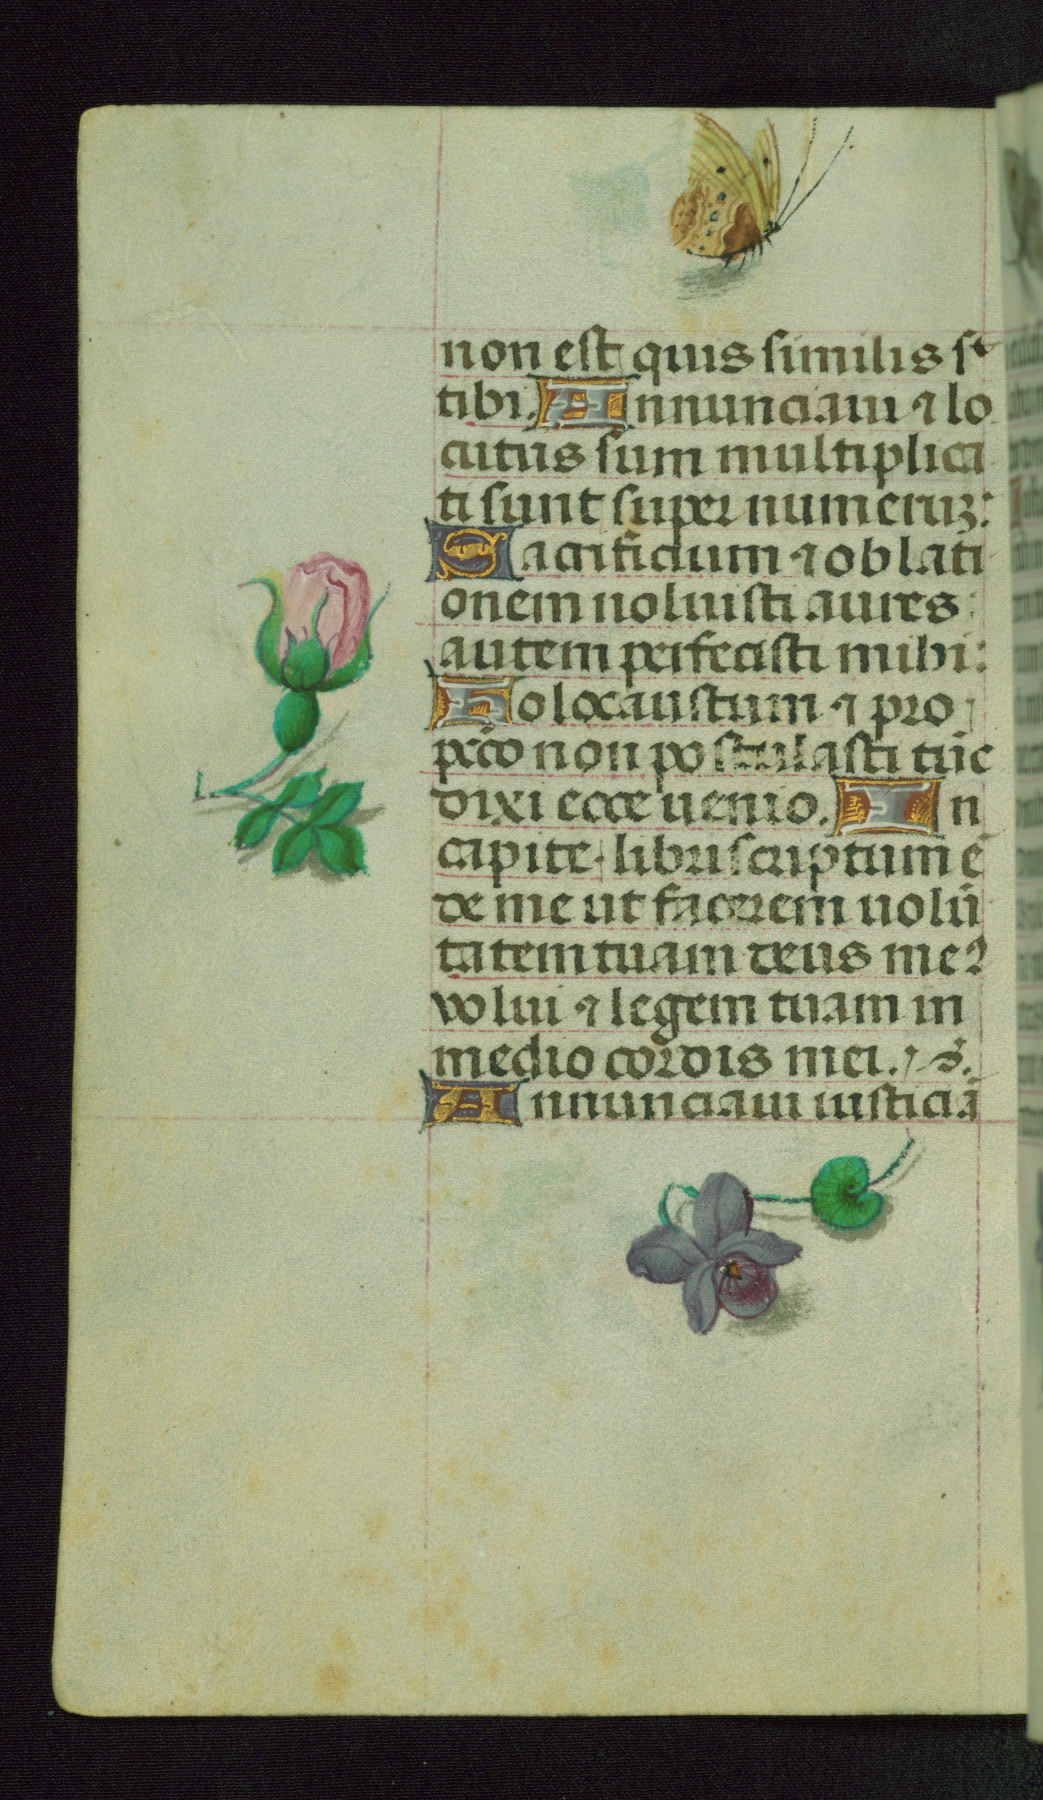 non est quis similis sit
tibi. Annunciaui ⁊ lo
cutus sum multiplica
ti sunt super numeruꝫ:
Sacrificium ⁊ oblati
onem noluisti aures
autem perfecisti mihi:
Holocaustum ⁊ pro
pcc̄o non postulasti tūc
dixi ecce uenio. In
capite libri scriptum ē
de me ut facerem uolū
tatem tuam deus me⁹
volui ⁊ legem tuam in
medio cordis mei.
Annunciaui iusticiā